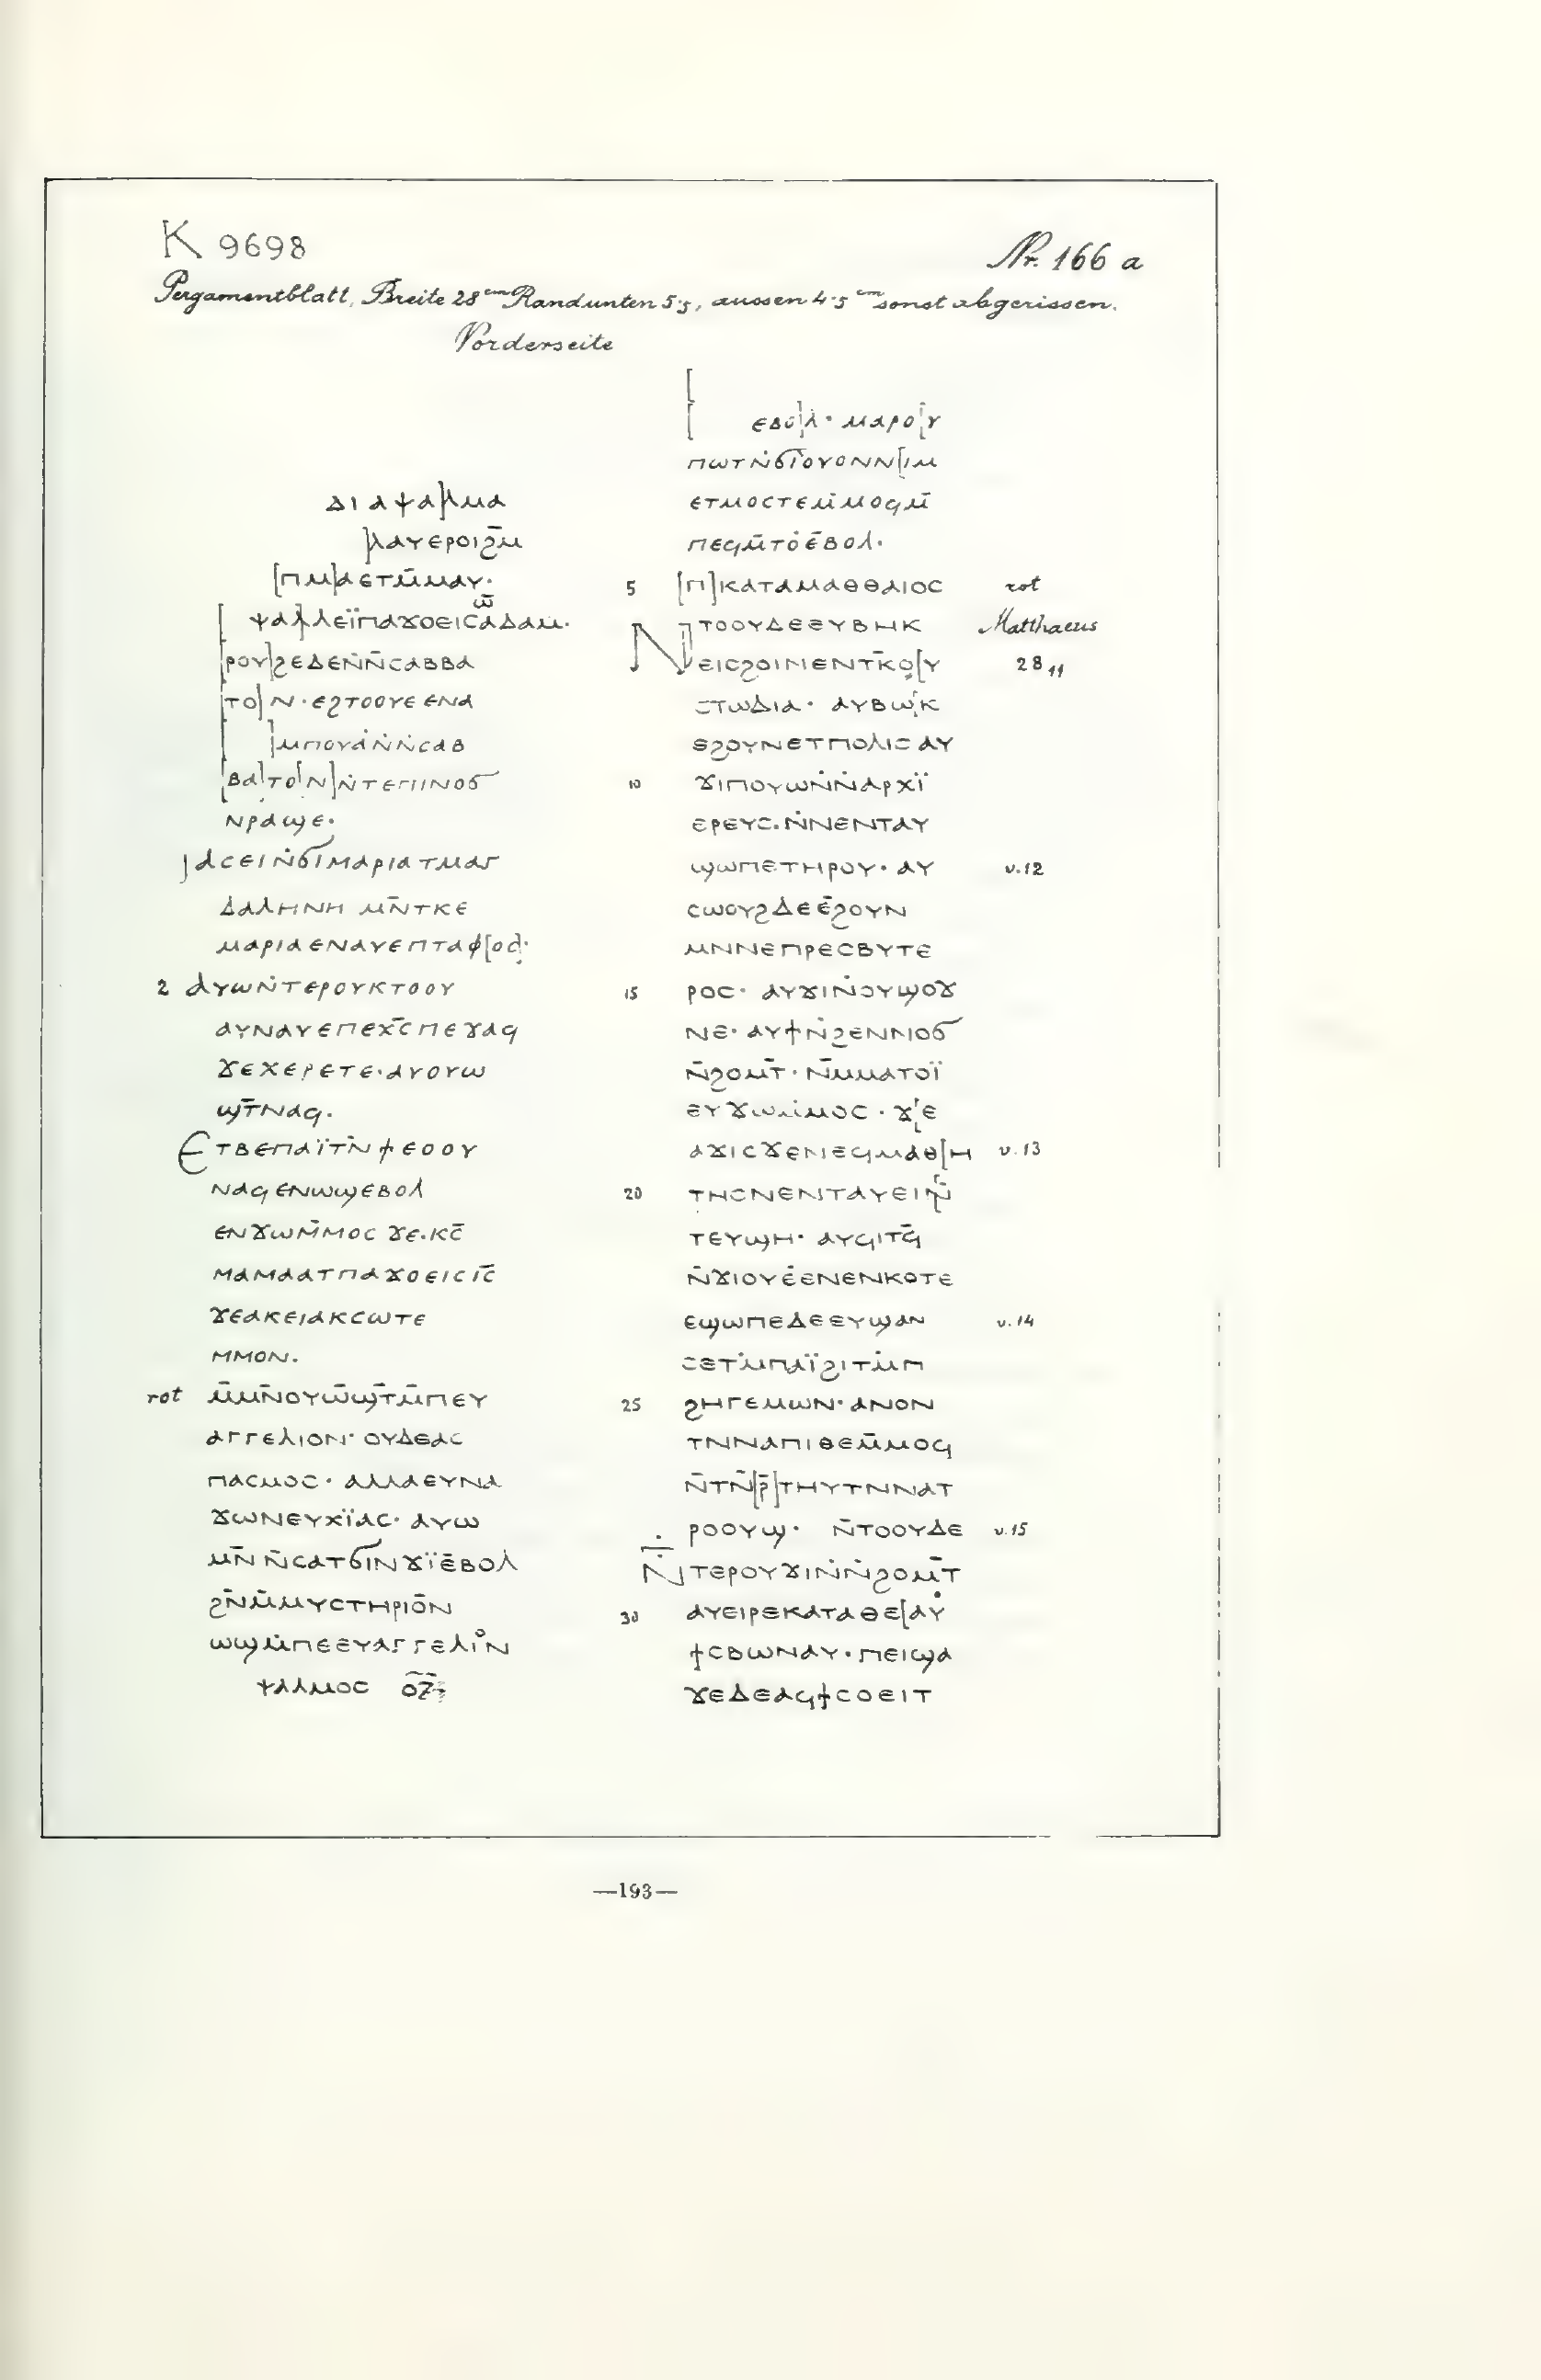 K 9698
Nr. 166 a
Pergamentblatt, Breite 28 cm Rand unten 5·5, aussen 4·5 cm sonst abgerissen.
Vorderseite
ⲇⲓⲁⲯⲁ]ⲗⲙⲁ
]ⲗⲁⲩⲉⲣⲟⲓϩ̄ⲙ
[ⲡⲙ]ⲁⲉⲧⲙ̄ⲙⲁⲩ·
[ⲯⲁ]ⲗⲗⲉⲓ̈ⲡⲁϫⲟⲉⲓⲥⲁⲇⲁⲙ·
[ⲣⲟⲩ]ϩⲉⲇⲉⲛ̄ⲛ̄ⲥⲁⲃⲃⲁ
[ⲧⲟ]ⲛ·ⲉϩⲧⲟⲟⲩⲉ ⲉⲛⲁ
[ ]ⲙⲡⲟⲩⲁ̇ⲛ̇ⲛ̇ⲥⲁⲃ
[ⲃⲁ]ⲧⲟ[ⲛ]ⲛ̇ⲧⲉⲡⲓⲛⲟϭ
ⲛⲣⲁϣⲉ·
]ⲁⲥⲉⲓⲛ̇ϭⲓⲙⲁⲣⲓⲁⲧⲙⲁⲅ
ⲇⲁⲗⲏⲛⲏ ⲙⲛ̄ⲧⲕⲉ
ⲙⲁⲣⲓⲁⲉⲛⲁⲩⲉⲡⲧⲁⲫ[ⲟⲥ]·
2 ⲁⲩⲱⲛ̇ⲧⲉⲣⲟⲩⲕⲧⲟⲟⲩ
ⲁⲩⲛⲁⲩⲉⲡⲉⲭ̄ⲥ̄ⲡⲉϫⲁϥ
ϫⲉⲭⲉⲣⲉⲧⲉ·ⲁⲩⲟⲩⲱ
ϣ̄ⲧ̄ⲛⲁϥ.
ⲉⲧⲃⲉⲡⲁⲓ̈ⲧⲛ̄ϯⲉⲟⲟⲩ
ⲛⲁϥⲉⲛⲱϣⲉⲃⲟⲗ
ⲉⲛϫⲱⲙ̄ⲙⲟⲥ ϫⲉ.ⲕ̄ⲥ̄
ⲙⲁⲙⲁⲁⲧⲡⲁϫⲟⲉⲓⲥⲓ̄ⲥ̄
ϫⲉⲁⲕⲉⲓⲁⲕⲥⲱⲧⲉ
ⲙⲙⲟⲛ.
rot ⲙ̄ⲙⲛ̄ⲟⲩⲱ̄ϣ̄ⲧ̄ⲙ̄ⲡⲉⲩ
ⲁⲅⲅⲉⲗⲓⲟⲛ· ⲟⲩⲇⲉⲁⲥ
ⲡⲁⲥⲙⲟⲥ· ⲁⲗⲗⲁⲉⲩⲛⲁ
ϫⲱⲛⲉⲩⲭⲓ̈ⲁⲥ· ⲁⲩⲱ
ⲙⲛ̄ ⲛ̄ⲥⲁⲧϭⲓⲛϫⲓ̈ⲉ̄ⲃⲟⲗ
ϩⲛ̄ⲙ̄ⲙⲩⲥⲧⲏⲣⲓⲟ̄ⲛ
ⲱϣⲙ̇ⲡⲉⲉⲩⲁⲅⲅⲉⲗⲓ°ⲛ
ⲯⲁⲗⲙⲟⲥ ⲟ̄ⲍ̄
[ ⲉⲃⲟ]ⲗ· ⲙⲁⲣⲟ[ⲩ
ⲡⲱⲧⲛ̇ϭⲓⲟⲩⲟⲛⲛ[ⲓⲙ
ⲉⲧⲙⲟⲥⲧⲉⲙ̄ⲙⲟϥⲙ̄
ⲡⲉϥⲙ̄ⲧⲟ̇ⲉ̄ⲃⲟⲗ·
5 [ⲡ]ⲕⲁⲧⲁⲙⲁⲑⲑⲁⲓⲟⲥ rot
ⲛⲧⲟⲟⲩⲇⲉⲉⲩⲃⲏⲕ Matthaeus
ⲉⲓⲥϩⲟⲓⲛⲉⲛⲧ̄ⲕⲟ[ⲩ 28 11
ⲥⲧⲱⲇⲓⲁ· ⲁⲩⲃⲱⲕ
ⲉϩⲟⲩⲛⲉⲧⲡⲟⲗⲓⲥ ⲁⲩ
10 ϫⲓⲡⲟⲩⲱⲛ̇ⲛ̇ⲁⲣⲭⲓ̈
ⲉⲣⲉⲩⲥ.ⲛ̇ⲛⲉⲛⲧⲁⲩ
ϣⲱⲡⲉⲧⲏⲣⲟⲩ· ⲁⲩ v.12
ⲥⲱⲟⲩϩⲇⲉⲉ̄ϩⲟⲩⲛ
ⲙⲛⲛⲉⲡⲣⲉⲥⲃⲩⲧⲉ
15 ⲣⲟⲥ· ⲁⲩϫⲓⲛ̇ⲟⲩϣⲟϫ
ⲛⲉ· ⲁⲩϯⲛ̇ϩⲉⲛⲛⲟϭ
ⲛ̄ϩⲟⲙ̄ⲧ· ⲛ̄ⲙⲙⲁⲧⲟⲓ̈
ⲉⲩϫⲱⲙ̇ⲙⲟⲥ· ϫ[ⲉ
ⲁϫⲓⲥϫⲉⲛⲉϥⲙⲁⲑ[ⲏ v.13
20 ⲧⲏⲥⲛⲉⲛⲧⲁⲩⲉⲓⲛ̄
ⲧⲉⲩϣⲏ· ⲁⲩϥⲓⲧϥ̄
ⲛ̇ϫⲓⲟⲩⲉ̇ⲉⲛⲉⲛⲕⲟⲧⲉ
ⲉϣⲱⲡⲉⲇⲉⲉⲩϣⲁⲛ v.14
ⲥⲉⲧⲙ̇ⲡⲁⲓ̈ϩⲓⲧⲙ̇ⲡ
25 ϩⲏⲅⲉⲙⲱⲛ· ⲁⲛⲟⲛ
ⲧⲛⲛⲁⲡⲓⲑⲉⲙ̄ⲙⲟϥ
ⲛ̄ⲧⲛ̄[ⲣ̄]ⲧⲏⲩⲧⲛⲛⲁⲧ
ⲣⲟⲟⲩϣ· ⲛ̄ⲧⲟⲟⲩⲇⲉ v.15
ⲛ̇ⲧⲉⲣⲟⲩϫⲓⲛ̇ⲛ̇ϩⲟⲙ̄ⲧ
30 ⲁⲩⲉⲓⲣⲉⲕⲁⲧⲁⲑⲉ[ⲁⲩ
ϯⲥⲃⲱⲛⲁⲩ· ⲡⲉⲓϣⲁ
ϫⲉⲇⲉⲁϥϯⲥⲟⲉⲓⲧ
—193—